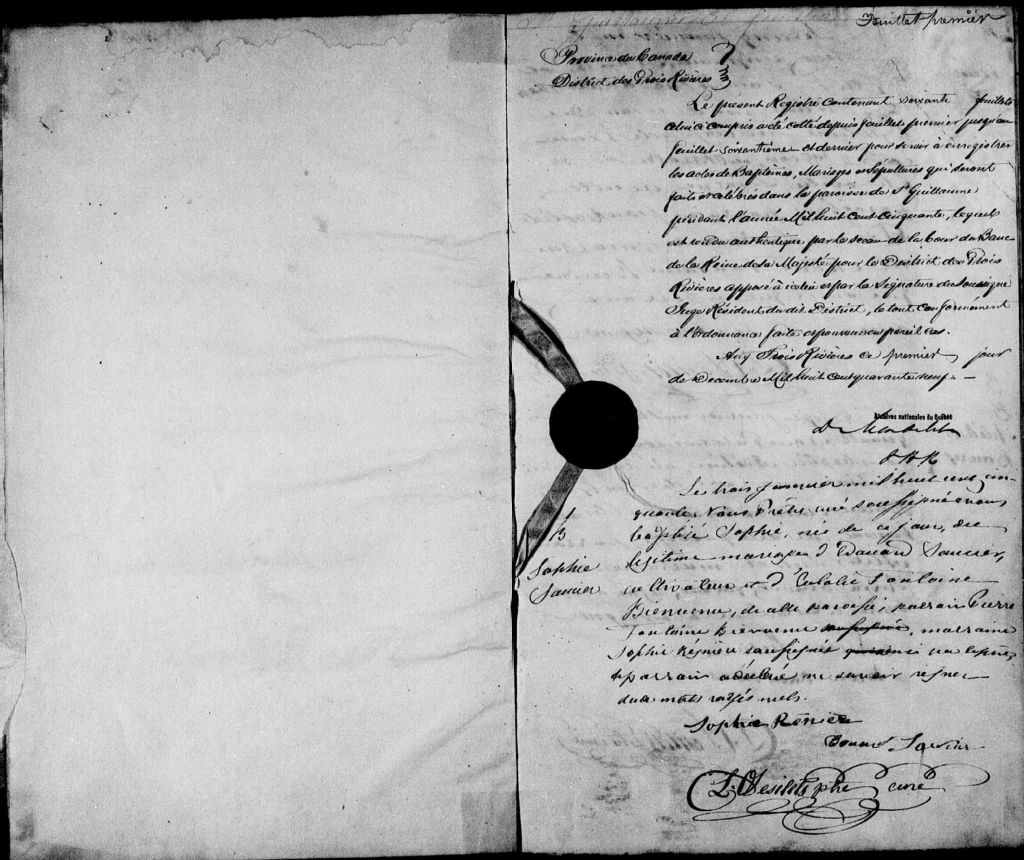 Feuillet premier
Province du Canada
District des Trois Rivières
Le present Registre contenant soixante feuillets
celui ci compris a été cotté depuis feuillet premier jusqu'au
feuillet soixantième et dernier pour servir à enregistrer
les actes de Baptêmes, Mariages et Sepultures qui seront
faits et célébrés dans la paroisse de St Guillaume
pendant l'année Mil huit cent cinquante, lequel
est rendu authentique par le sceau de la Cour du Banc
de la Reine de sa Majesté pour le District des Trois
Rivières apposé à icelui et par la signature du Soussigné
Juge Résident du dit District, le tout conformément
à l'ordonnance faite et pourvue en pareil cas.
Aux Trois Rivières ce premier jour
de Decembre Mil huit cent quarante neuf. —
Archives nationales du Québec
D. Mondelet
Le trois Janvier mil huit cent cin-
quante, Nous Prêtre curé soussigné avons
B 1
baptisé Sophie, née de ce jour, du
Sophie
légitime mariage d'Edouard Saucier,
Saucier
cultivateur et d'Eulalie Fontaine
Bienvenue, de cette paroisse; parrain Pierre
Fontaine Bienvenue soussigné, marraine
Sophie Régnière soussignée
le parrain a déclaré ne savoir signer
deux mots rayés nuls.
Sophie Renière
Saucier
curé